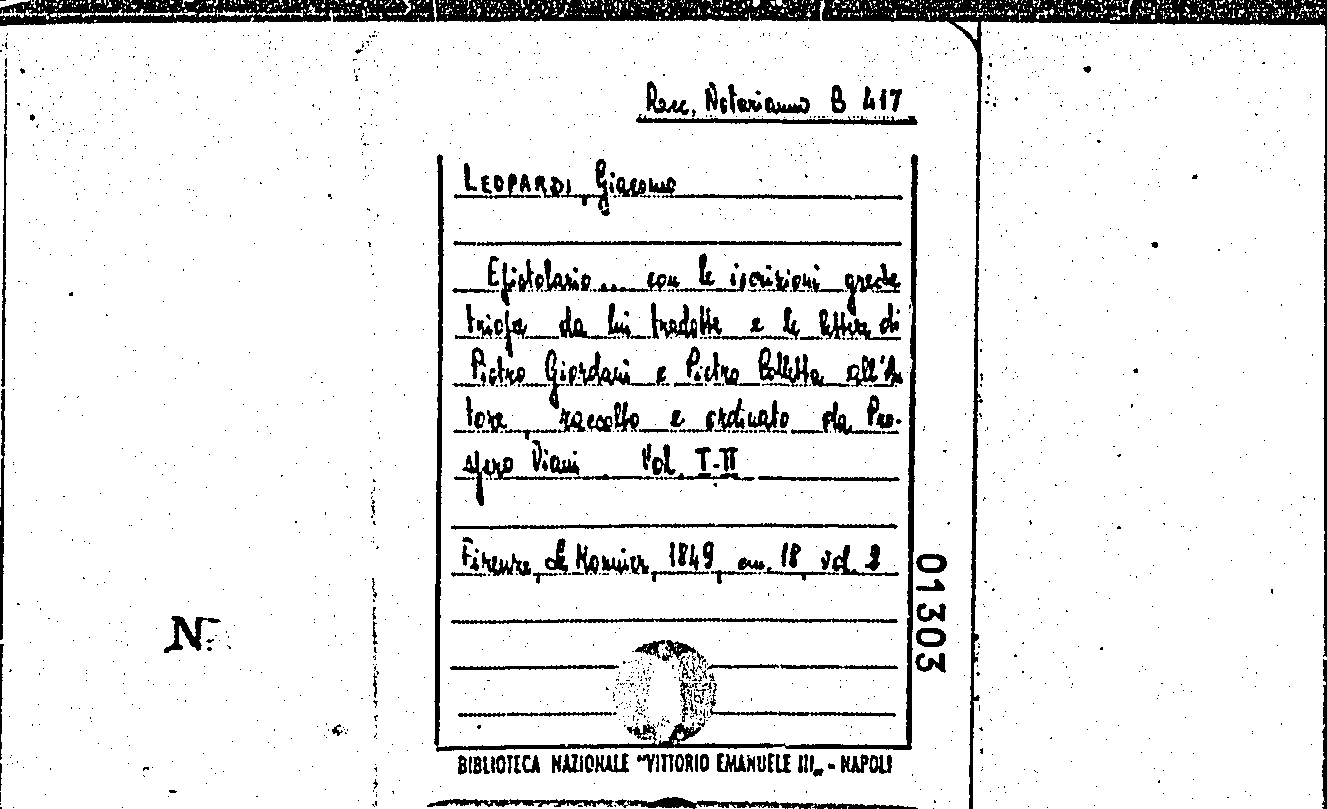 Racc. Notarianni B 417
LEOPARDI, Giacomo
Epistolario ... con le iscrizioni greche
triopee da lui tradotte e le lettere di
Pietro Giordani e Pietro Colletta all'Au
tore, raccolto e ordinato da Pro-
spero Viani Vol. I-II
Firenze, Le Monnier, 1849, cm. 18, vol. 2
01303
N.
BIBLIOTECA NAZIONALE "VITTORIO EMANUELE III„ - NAPOLI